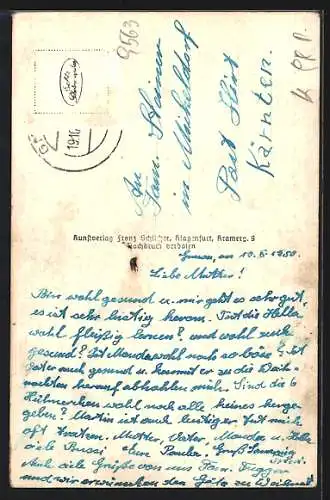 9563
K
1916
An
Fam. Steiner
in Micheldorf
Post Hirt
Kärnten.
Kunstverlag Franz Schilcher, Klagenfurt, Kramerg. 5
Nachdruck verboten
am 10.8.1950.
Liebe Mutter!
Bin wohl gesund u. mir geht es sehr gut,
es ist sehr lustig herom. Tut die Hella
wohl fleißig lernen? und wohl
gesund? Ist Manda wohl noch so böse? Ist
Vater auch gesund u. kommt er zu die Weih-
nachten herauf abhohlen mich. Sind die 6
Hühnerchen wohl noch alle keines herge-
geben? Martin ist auch lustiger tut mich
oft kratzen. Mutter, Vater, Manda u. Hella
viele Bussi eure Gruß
Auch viele Grüße von uns Fam.
und wir erwünschen das Gute zu Weihnacht